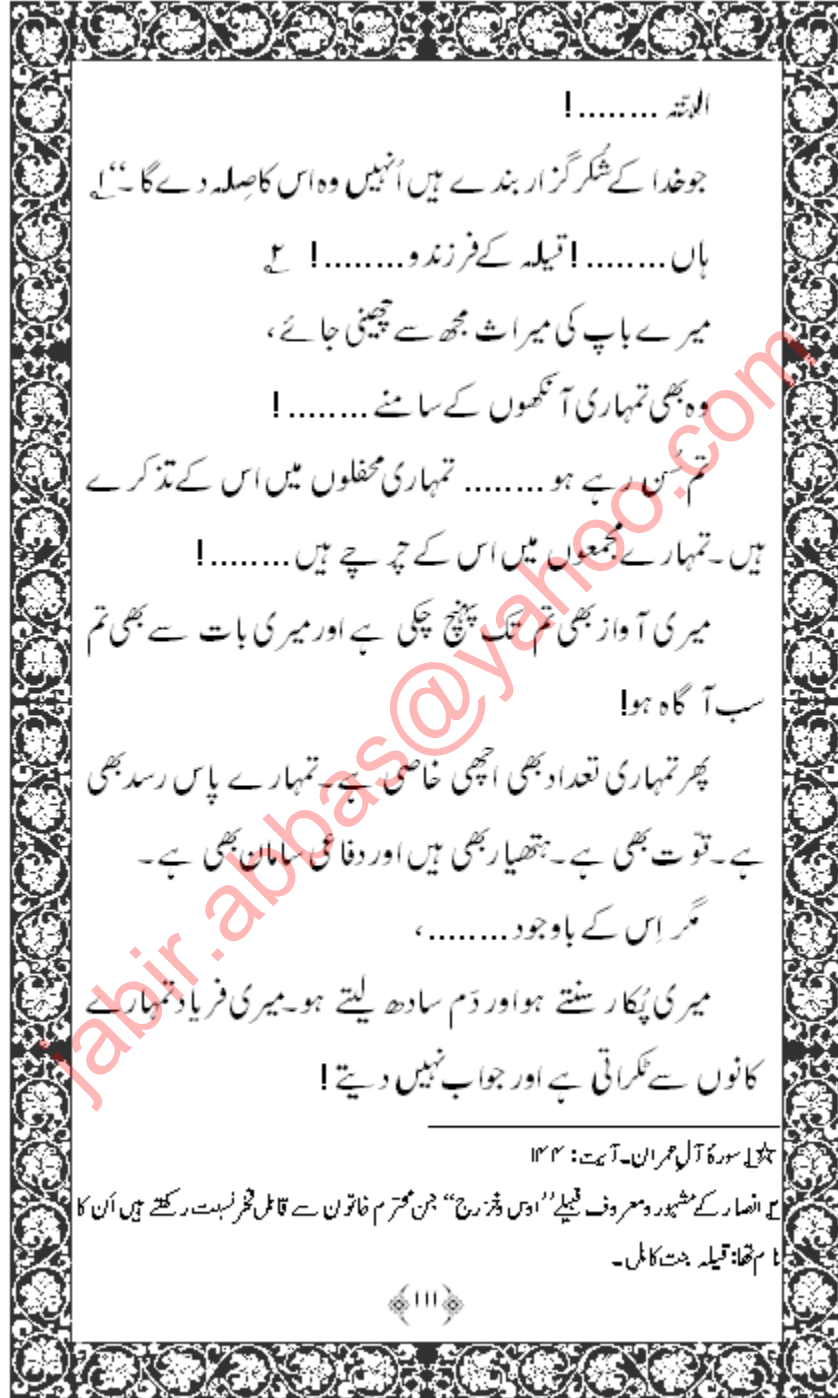 البتّہ ........!
جو خدا کے شُکر گزار بندے ہیں اُنہیں وہ اس کا صِلہ دے گا ۔‘‘ ۱؎
ہاں ........! قیلہ کے فرزندو ........! ۲؎
میرے باپ کی میراث مجھ سے چھینی جائے ،
وہ بھی تمہاری آنکھوں کے سامنے ........!
تم سُن رہے ہو ........ تمہاری محفلوں میں اس کے تذکرے
ہیں ۔ تمہارے مجمعوں میں اس کے چرچے ہیں ........!
میری آواز بھی تم تک پہنچ چکی ہے اور میری بات سے بھی تم
سب آگاہ ہو!
پھر تمہاری تعداد بھی اچھی خاصی ہے ۔ تمہارے پاس رسد بھی
ہے ۔ قوّت بھی ہے ۔ ہتھیار بھی ہیں اور دفاعی سامان بھی ہے ۔
مگر اِس کے باوجود ........ ،
میری پُکار سنتے ہو اور دَم سادھ لیتے ہو۔ میری فریاد تمہارے
کانوں سے ٹکراتی ہے اور جواب نہیں دیتے !
☆۱؎ سورۂ آل عمران۔ آیت: ۱۴۴
۲؎ انصار کے مشہور و معروف قبیلے ’’اوس و خزرج‘‘ جن محترم خاتون سے قابل فخر نسبت رکھتے ہیں اُن کا
نام تھا: قیلہ بنت کاہل ۔
۱۱۱
jabir.abbas@yahoo.com